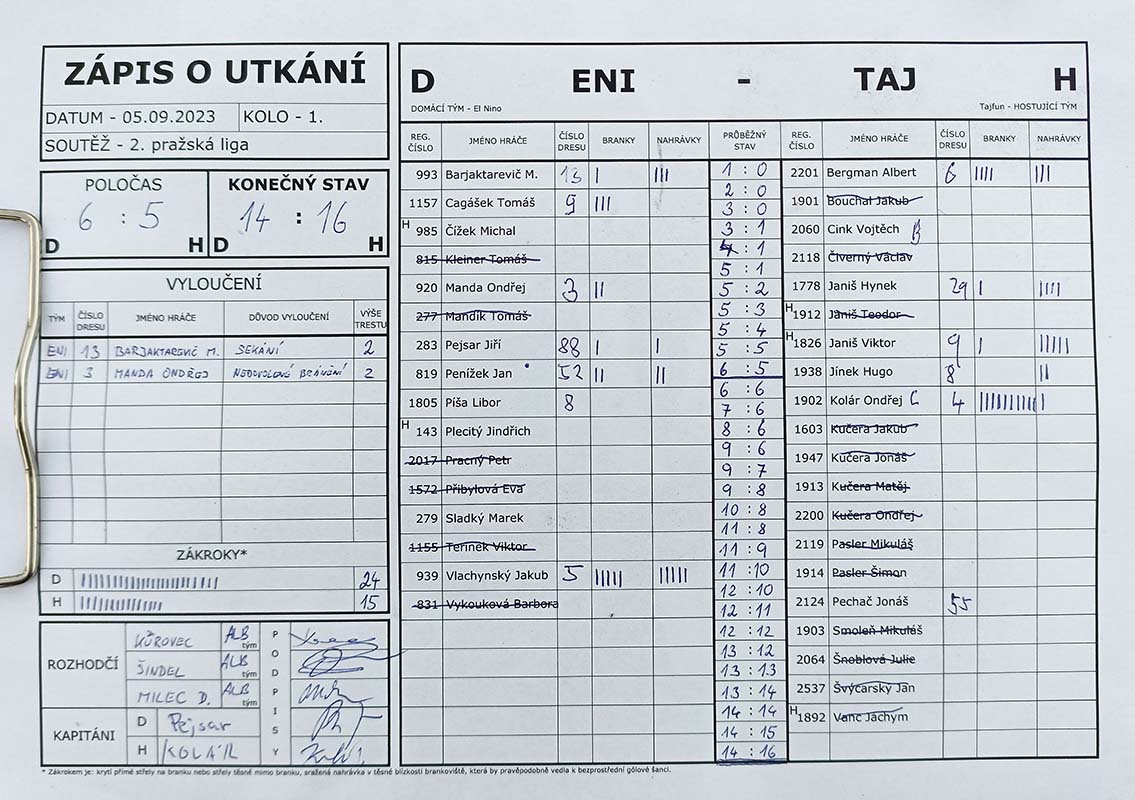 ZÁPIS O UTKÁNÍ
DATUM - 05.09.2023 KOLO - 1.
SOUTĚŽ - 2. pražská liga
POLOČAS
6 : 5
D H
KONEČNÝ STAV
14 : 16
D H
VYLOUČENÍ
TÝM ČÍSLO DRESU JMÉNO HRÁČE DŮVOD VYLOUČENÍ VÝŠE TRESTU
ENI 13 BARJAKTAREVIČ M. SEKÁNÍ 2
ENI 3 MANDA ONDŘEJ NEDOVOLENÉ BRÁNĚNÍ 2
ZÁKROKY*
D 24
H 15
ROZHODČÍ
KŮROVEC ALB tým
ŠINDEL ALB tým
MILEC D. ALB tým
PODPISY
KAPITÁNI
D Pejsar
H KOLÁR
D ENI - TAJ H
DOMÁCÍ TÝM - El Nino Tajfun - HOSTUJÍCÍ TÝM
REG. ČÍSLO JMÉNO HRÁČE ČÍSLO DRESU BRANKY NAHRÁVKY
993 Barjaktarevič M. 13 | |||
1157 Cagášek Tomáš 9 |||
H 985 Čížek Michal
815 Kleiner Tomáš
920 Manda Ondřej 3 ||
277 Mandík Tomáš
283 Pejsar Jiří 88 | |
819 Penížek Jan 52 || ||
1805 Píša Libor 8
H 143 Plecitý Jindřich
2017 Pracný Petr
1572 Přibylová Eva
279 Sladký Marek
1155 Teřinek Viktor
939 Vlachynský Jakub 5 ||||| |||||
831 Vykouková Barbora
PRŮBĚŽNÝ STAV
1 : 0
2 : 0
3 : 0
3 : 1
4 : 1
5 : 1
5 : 2
5 : 3
5 : 4
5 : 5
6 : 5
6 : 6
7 : 6
8 : 6
9 : 6
9 : 7
9 : 8
10 : 8
11 : 8
11 : 9
11 : 10
12 : 10
12 : 11
12 : 12
13 : 12
13 : 13
13 : 14
14 : 14
14 : 15
14 : 16
REG. ČÍSLO JMÉNO HRÁČE ČÍSLO DRESU BRANKY NAHRÁVKY
2201 Bergman Albert 6 |||| |||
1901 Bouchal Jakub
2060 Cink Vojtěch B
2118 Čiverný Václav
1778 Janiš Hynek 29 | ||||
H 1912 Janiš Teodor
H 1826 Janiš Viktor 9 | |||||
1938 Jínek Hugo 8 ||
1902 Kolár Ondřej C 4 |||||||||||
1603 Kučera Jakub
1947 Kučera Jonáš
1913 Kučera Matěj
2200 Kučera Ondřej
2119 Pasler Mikuláš
1914 Pasler Šimon
2124 Pechač Jonáš 55
1903 Smoleň Mikuláš
2064 Šnoblová Julie
2537 Švýcarský Jan
H 1892 Vanc Jáchym
* Zákrokem je: krytí přímé střely na branku nebo střely těsně mimo branku, sražená nahrávka v těsné blízkosti brankoviště, která by pravěpodobně vedla k bezprostřední gólové šanci.